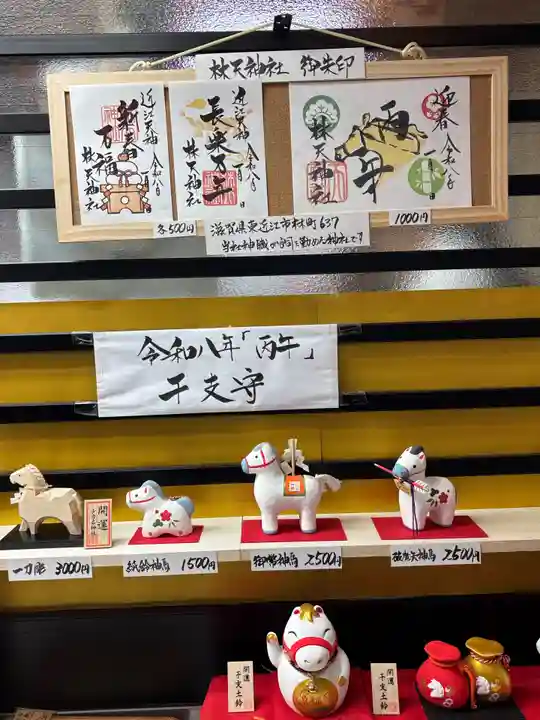 林天神社 御朱印
近江天神
新春
万福
林天神社
令和八年 一月 日
近江天神
長楽万年
林天神社
令和八年 一月 日
迎春
令和八年
一月 日
丙午
林天神社
各500円
1000円
滋賀県東近江市林町637
当社神職が
令和八年「丙午」
干支守
開運
一刀彫 3000円
紙鈴神馬 1500円
御幣神馬 2500円
破魔矢神馬 2500円
開運
干支土鈴
開運
干支土鈴